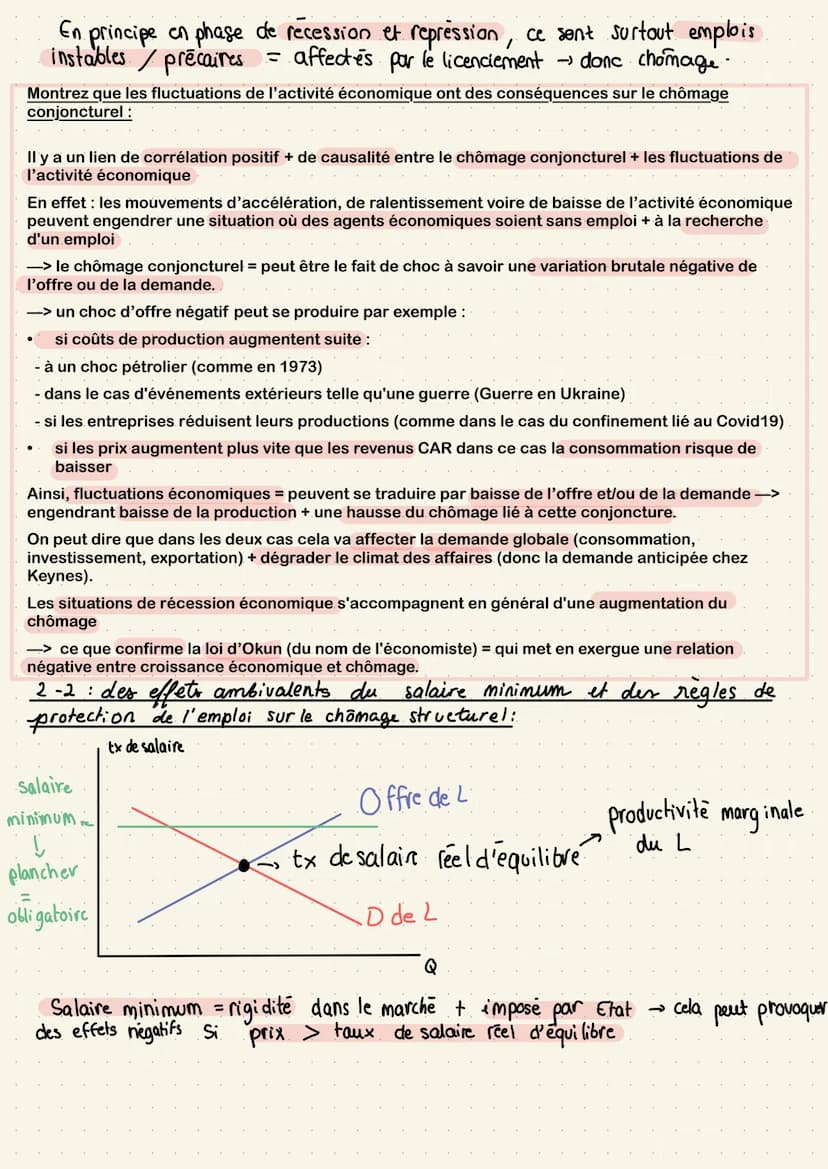 En principe en phase de récession et repression, ce sont surtout emplois
instables / précaires = affectés par le licenciement → donc chômage.
Montrez que les fluctuations de l'activité économique ont des conséquences sur le chômage
conjoncturel :
Il y a un lien de corrélation positif + de causalité entre le chômage conjoncturel + les fluctuations de
l'activité économique
En effet : les mouvements d'accélération, de ralentissement voire de baisse de l'activité économique
peuvent engendrer une situation où des agents économiques soient sans emploi + à la recherche
d'un emploi
—> le chômage conjoncturel = peut être le fait de choc à savoir une variation brutale négative de
l'offre ou de la demande.
—> un choc d'offre négatif peut se produire par exemple :
• si coûts de production augmentent suite :
- à un choc pétrolier (comme en 1973)
- dans le cas d'événements extérieurs telle qu'une guerre (Guerre en Ukraine)
- si les entreprises réduisent leurs productions (comme dans le cas du confinement lié au Covid19)
• si les prix augmentent plus vite que les revenus CAR dans ce cas la consommation risque de
baisser
Ainsi, fluctuations économiques = peuvent se traduire par baisse de l'offre et/ou de la demande —>
engendrant baisse de la production + une hausse du chômage lié à cette conjoncture.
On peut dire que dans les deux cas cela va affecter la demande globale (consommation,
investissement, exportation) + dégrader le climat des affaires (donc la demande anticipée chez
Keynes).
Les situations de récession économique s'accompagnent en général d'une augmentation du
chômage
—> ce que confirme la loi d'Okun (du nom de l'économiste) = qui met en exergue une relation
négative entre croissance économique et chômage.
2-2 : des effets ambivalents du salaire minimum et des règles de
protection de l'emploi sur le chômage structurel :
tx de salaire
salaire
minimum
↓
plancher
=
obligatoire
Offre de L
→ tx de salaire réel d'équilibre
productivité marginale
du L
D de L
Q
Salaire minimum = rigidité dans le marché + imposé par Etat → cela peut provoquer
des effets négatifs si prix > taux de salaire réel d'équilibre